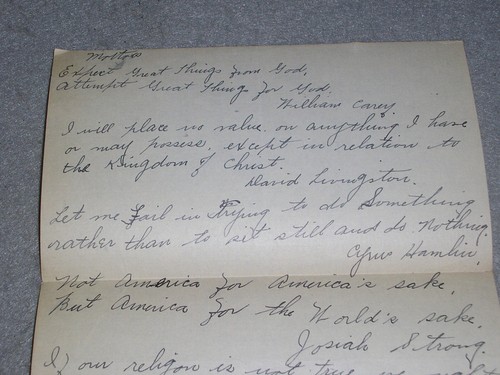 Mottoes
Expect Great Things from God,
Attempt Great Things for God.
William Carey
I will place no value on anything I have
or may possess, except in relation to
the Kingdom of Christ.
David Livingston.
Let me Fail in Trying to do Something
rather than to sit still and do Nothing.
Cyrus Hamlin.
Not America for America's sake,
But America for the World's sake.
Josiah Strong.
If our religon is not true we